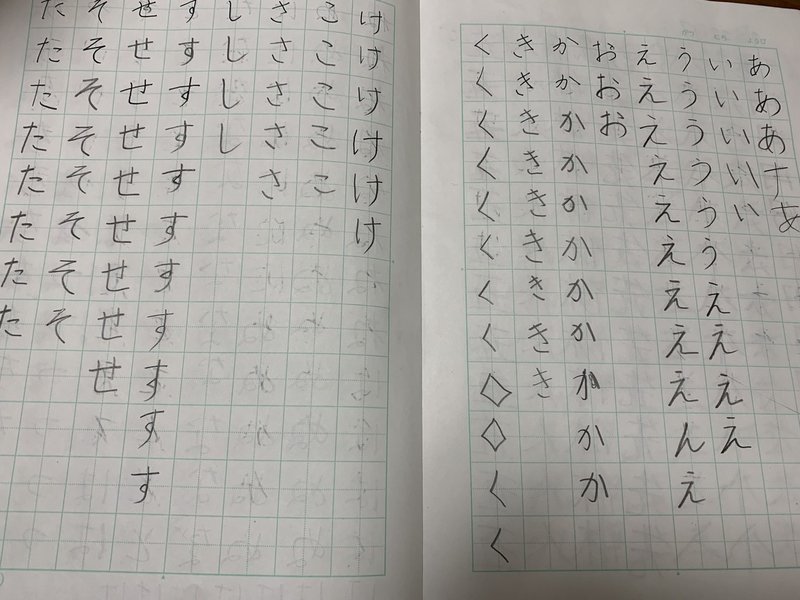 あああああ
いいいいい
ううううううええええ
えええええええええんえ
おおお
かかかかかかかかかかか
ききききききききき
くくくくくくくく◇◇くく
けけけけけけ
こここここ
さささささ
しししし
すすすすすすすすすすす
せせせせせせせせせ
そそそそそそそそ
たたたたたたたた